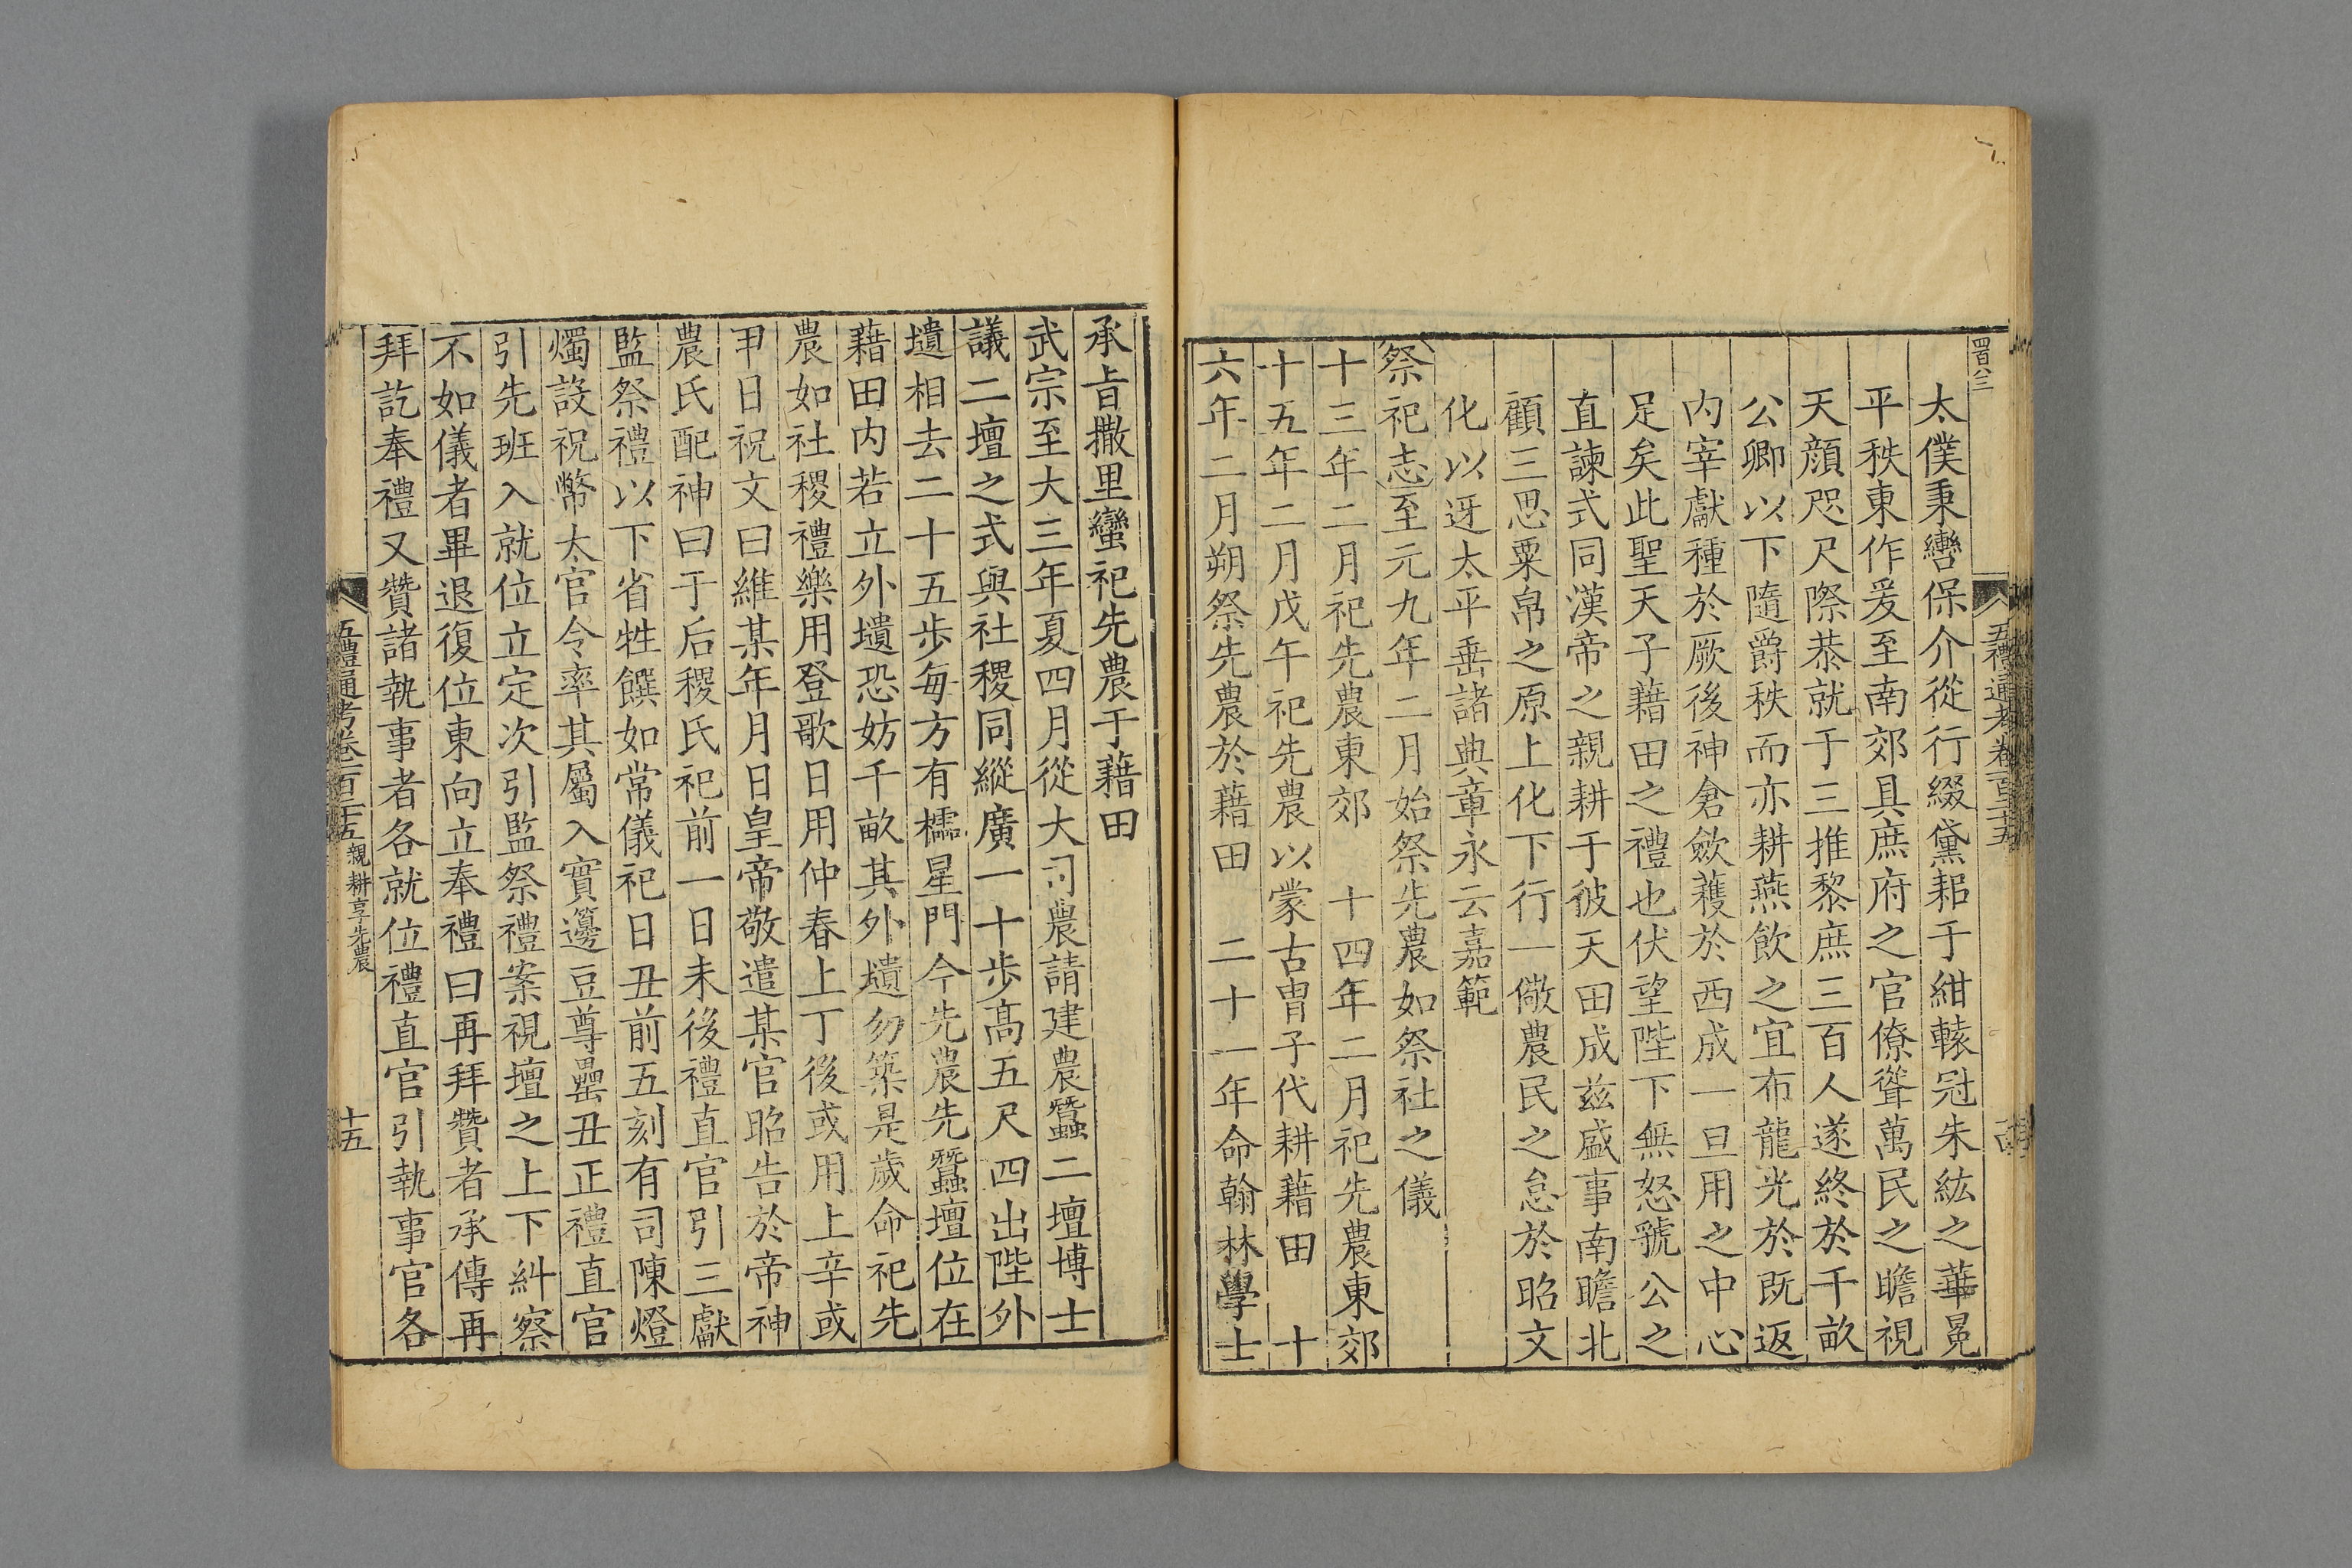 太僕秉轡保介從行綴黛耜于紺轅冠朱紘之華冕
平秩東作爰至南郊具庶府之官僚聳萬民之瞻視
天顔咫尺際恭就于三推黎庶三百人遂終於千畝
公卿以下隨爵秩而亦耕燕飲之宜布龍光於既返
内宰獻種於厥後神倉斂蓰於西成一旦用之中心
足矣此聖天子藉田之禮也伏望陛下無怒虢公之
直諫式同漢帝之親耕于彼天田成兹盛事南瞻北
顧三思粟帛之原上化下行一儆農民之怠於昭文
化以迓太平垂諸典章永云嘉範
祭祀志至元九年二月始祭先農如祭社之儀
十三年二月祀先農東郊　十四年二月祀先農東郊
十五年二月戊午祀先農以蒙古冑子代耕藉田　十
六年二月朔祭先農於藉田　二十一年命翰林學士
承旨撒里蠻祀先農于藉田
武宗至大三年夏四月從大司農請建農蠶二壇博士
議二壇之式與社稷同縱廣一十步高五尺四出陛外
壝相去二十五步每方有櫺星門今先農先蠶壇位在
藉田内若立外壝恐妨千畝其外壝勿築是歲命祀先
農如社稷禮樂用登歌日用仲春上丁後或用上辛或
甲日祝文曰維某年月日皇帝敬遣某官昭告於帝神
農氏配神曰于后稷氏祀前一日未後禮直官引三獻
監祭禮以下省牲饌如常儀祀日丑前五刻有司陳燈
燭設祝幣太官令率其屬入實籩豆尊罍丑正禮直官
引先班入就位立定次引監祭禮案視壇之上下糾察
不如儀者畢退復位東向立奉禮曰再拜贊者承傳再
拜訖奉禮又贊諸執事者各就位禮直官引執事官各
五禮通考卷一百二十五 親耕享先農
十五